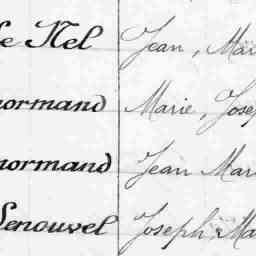 e Nel Jean, Ma
normand Marie, Jose
normand Jean Mari
Lenouvel Joseph Ma